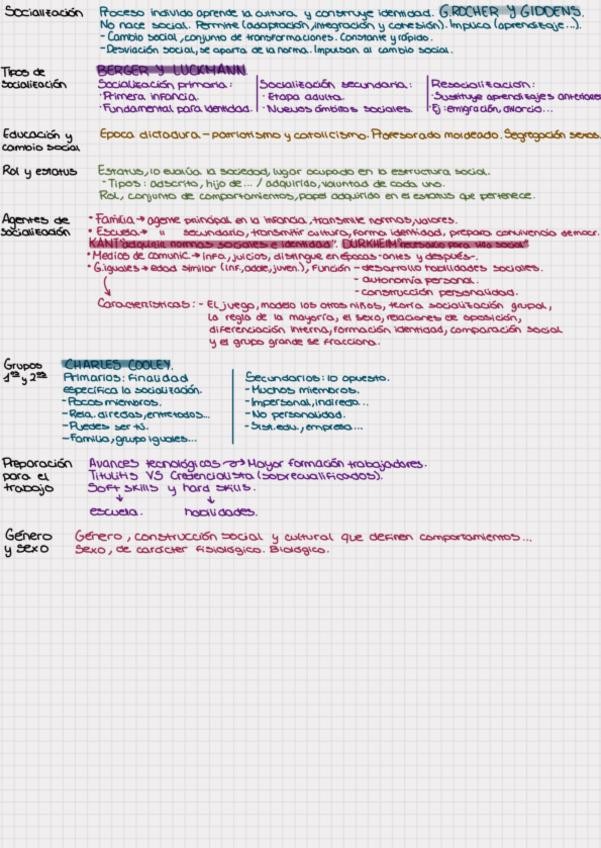 Socialización
Proceso individo aprende la cultura y construye identidad. G.ROCHER Y GIDDENS.
No nace social. Permite (adaptación, integración y cohesión). Implica (aprendizaje...).
- Cambio social, conjunto de transformaciones. Constante y rápido.
- Desviación social, se aparta de la norma. Impulsan al cambio social.
Tipos de
socialización
BERGER Y LUCKMANN
Socialización primaria:
· Primera infancia.
· Fundamental para identidad.
Socialización secundaria:
· Etapa adulta.
· Nuevos ámbitos sociales.
Resocialización:
· Sustituye aprendizajes anteriores
· Ej: emigración, divorcio...
Educación y
cambio social
Época dictadura - patriotismo y catolicismo. Profesorado moldeado. Segregación sexos.
Rol y estatus
Estatus, lo evalúa la sociedad, lugar ocupado en la estructura social.
- Tipos: adscrito, hijo de... / adquirido, voluntad de cada uno.
Rol, conjunto de comportamientos, papel adquirido en el estatus que pertenece.
Agentes de
socialización
· Familia → agente principal en la infancia, transmite normas, valores.
· Escuela → " secundario, transmitir cultura, forma identidad, prepara convivencia democr.
KANT "adquirir normas sociales e identidad". DURKHEIM "necesario para vida social"
· Medios de comunic. → info, juicios, distingue en épocas - antes y después -.
· G.iguales → edad similar (inf, adole, juven.), Función - desarrollo habilidades sociales.
- autonomía personal.
- construcción personalidad.
Características: - El juego, modelo los otros niños, teoría socialización grupal,
la regla de la mayoría, el sexo, relaciones de oposición,
diferenciación interna, formación identidad, comparación social
y el grupo grande se fracciona.
Grupos
1ºs y 2ºs
CHARLES COOLEY.
Primarios: Finalidad
específica la socialización.
- Pocos miembros.
- Rela. directas, entre todos...
- Puedes ser tú.
- Familia, grupo iguales...
Secundarios: lo opuesto.
- Muchos miembros.
- Impersonal, indirecta...
- No personalidad.
- Sist. edu., empresa...
Preparación
para el
trabajo
Avances tecnológicos → Mayor formación trabajadores.
Titulitis VS Credencialista (sobrecualificados).
Soft skills y hard skills.
↓ ↓
escuela. habilidades.
Género
y sexo
Género, construcción social y cultural que definen comportamientos...
Sexo, de carácter fisiológico. Biológico.